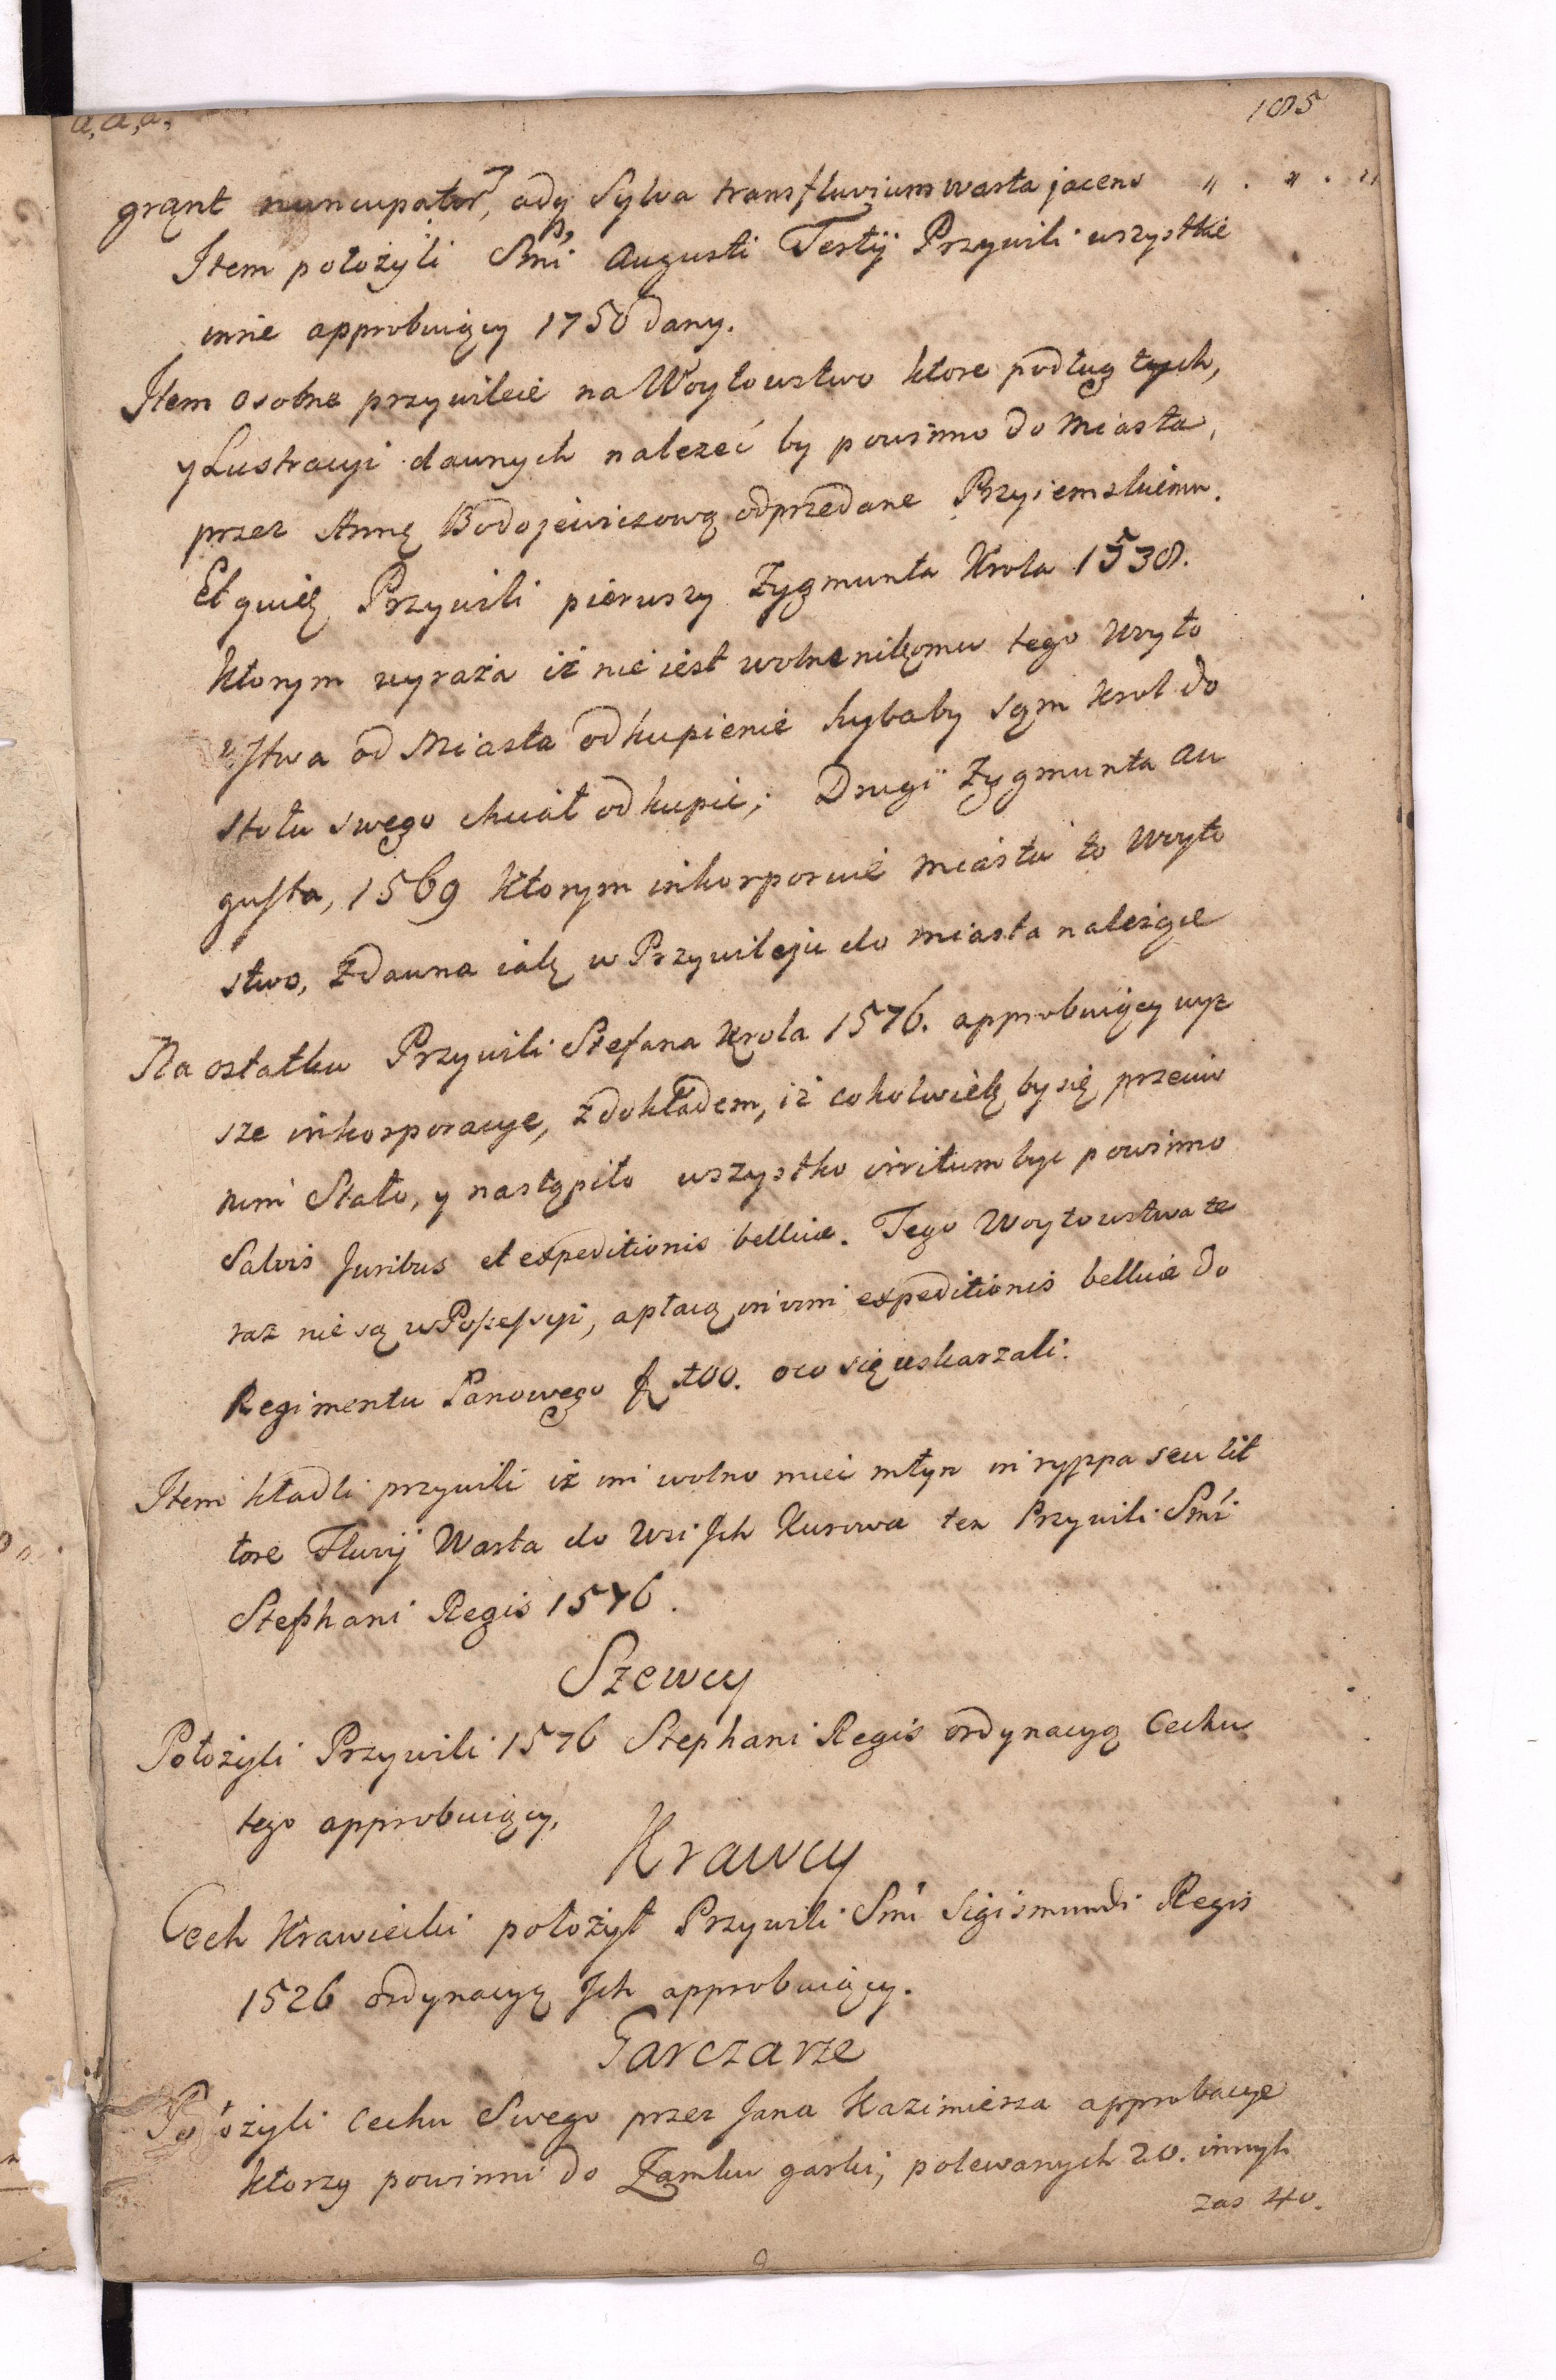 185
grąnt nuncupator, ady Sylva trans fluvium warta jacens „ . „ . „
Item położyli Smi Augusti Tertij Przywili wszystkie
inne approbuiący 1750 dany.
Item osobne przywileie na Woytowstwo ktore podług tych,
y Lustracyi dawnych nalezeć by powinno do Miasta,
przez Annę Bodojewiczową odprzedane Przyiemskiemu.
Et quidę Przywili pierwszy Zygmunta Krola 1538.
Ktorym wyraża iż nie iest wolne nikomu tego Woyto
wstwa od Miasta odkupienie hybaby sąm Krol do
stołu swego chciał odkupic; Drugi Zygmunta Au
gusta, 1569 Ktorym inkorporuie Miastu to Woyto
stwo, zdawna iakę w Przywileju do miasta należące
Na ostatku Przywili Stefana Krola 1576. approbuiący wyz
sze inkorporacye, z dokładem, iż cokolwiek by się przeciw
nim Stało, y nastąpiło wszystko irritum byc powinno
Salvis Juribus et expeditionis bellicæ. Tego Woytowstwa te
raz nie są w Possessyi, a płacą inimi expeditionis bellicæ do
Regimentu Panowego 100. oco się uskarzali.
Item kładli przywili iż im wolno mieć młyn in ryppa seu lit
tore Fluvij Warta do Wsi Ich Kurowa ten Przywili Smi
Stephani Regis 1576.
Szewcy
Położyli Przywili 1576 Stephani Regis ordynacyą Cechu
tego approbuiący,
Krawcy
Cech Krawiecki położył Przywili Smi Sigismundi Regis
1526 ordynacyą Ich approbuiący.
Garczarze
Położyli Cechu Swego przez Jana Kazimierza approbacye
Ktorzy powinni do Zamku garki, polewanych 20. innych
zas 40.